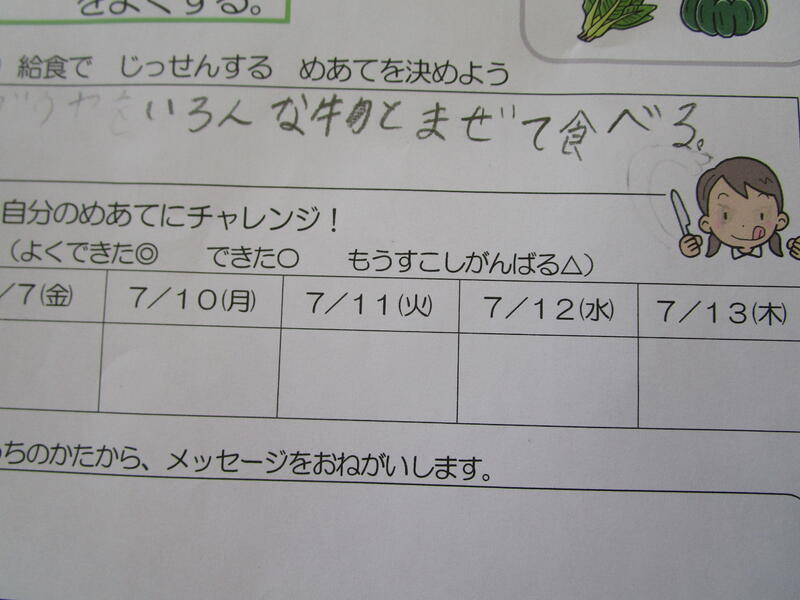 をよくする。
給食で じっせんする めあてを決めよう
いろんな物とまぜて食べる。
自分のめあてにチャレンジ！
（よくできた◎ できた○ もうすこしがんばる△）
/7(金) 7/10(月) 7/11(火) 7/12(水) 7/13(木)
ちのかたから、メッセージをおねがいします。